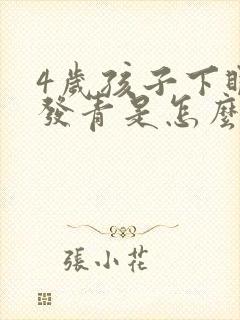 4歲孩子下眼
發青是怎麼
張小花